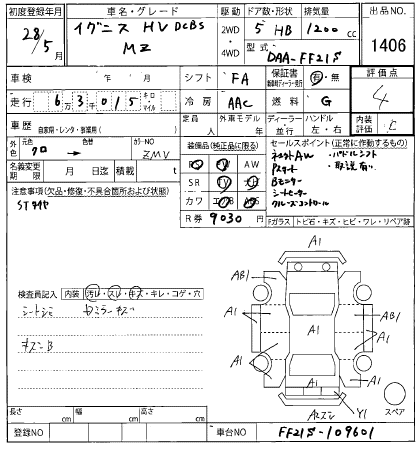 初度登録年月 車名・グレード 駆動 ドア数・形状 排気量 出品NO.
28年 イグニス HV DCBS 2WD 5 HB 1200 cc
5月 MZ 4WD 型式 DAA-FF21S 1406
車検 年 月 シフト FA 保証書 有・無 評価点
走行 6 3 千 0 1 5 キロ・マイル 冷房 AAC 燃料 G 4
車歴 自家用・レンタ・事業用( ) 定員 人 外車モデル 年 ディーラー・並行 ハンドル 左・右 内装評価 C
外色 元色 クロ → 色替 カラーNO ZMV 装備品(純正品に限る) セールスポイント(正常に作動するもの)
名義変更期限 月 日迄 積載 t AW ネットAW ・パドルシフト
注意事項(欠品・修復・不具合箇所および状態) SR Pスタート ・取説有い
STヤケ カワ Bモニター
シートヒーター
クルーズコントロール
R券 9030円 Fガラス トビ石・キズ・ヒビ・ワレ・リペア跡
検査員記入 内装 汚れ・スレ・キズ・キレ・コゲ・穴
シートシミ
キズB
A1
AB1 AB1
A1 A1 A1
A1 A1
A1
Y1
スペア
長さ cm 幅 cm 高さ cm
登録NO 車台NO FF21S-109601